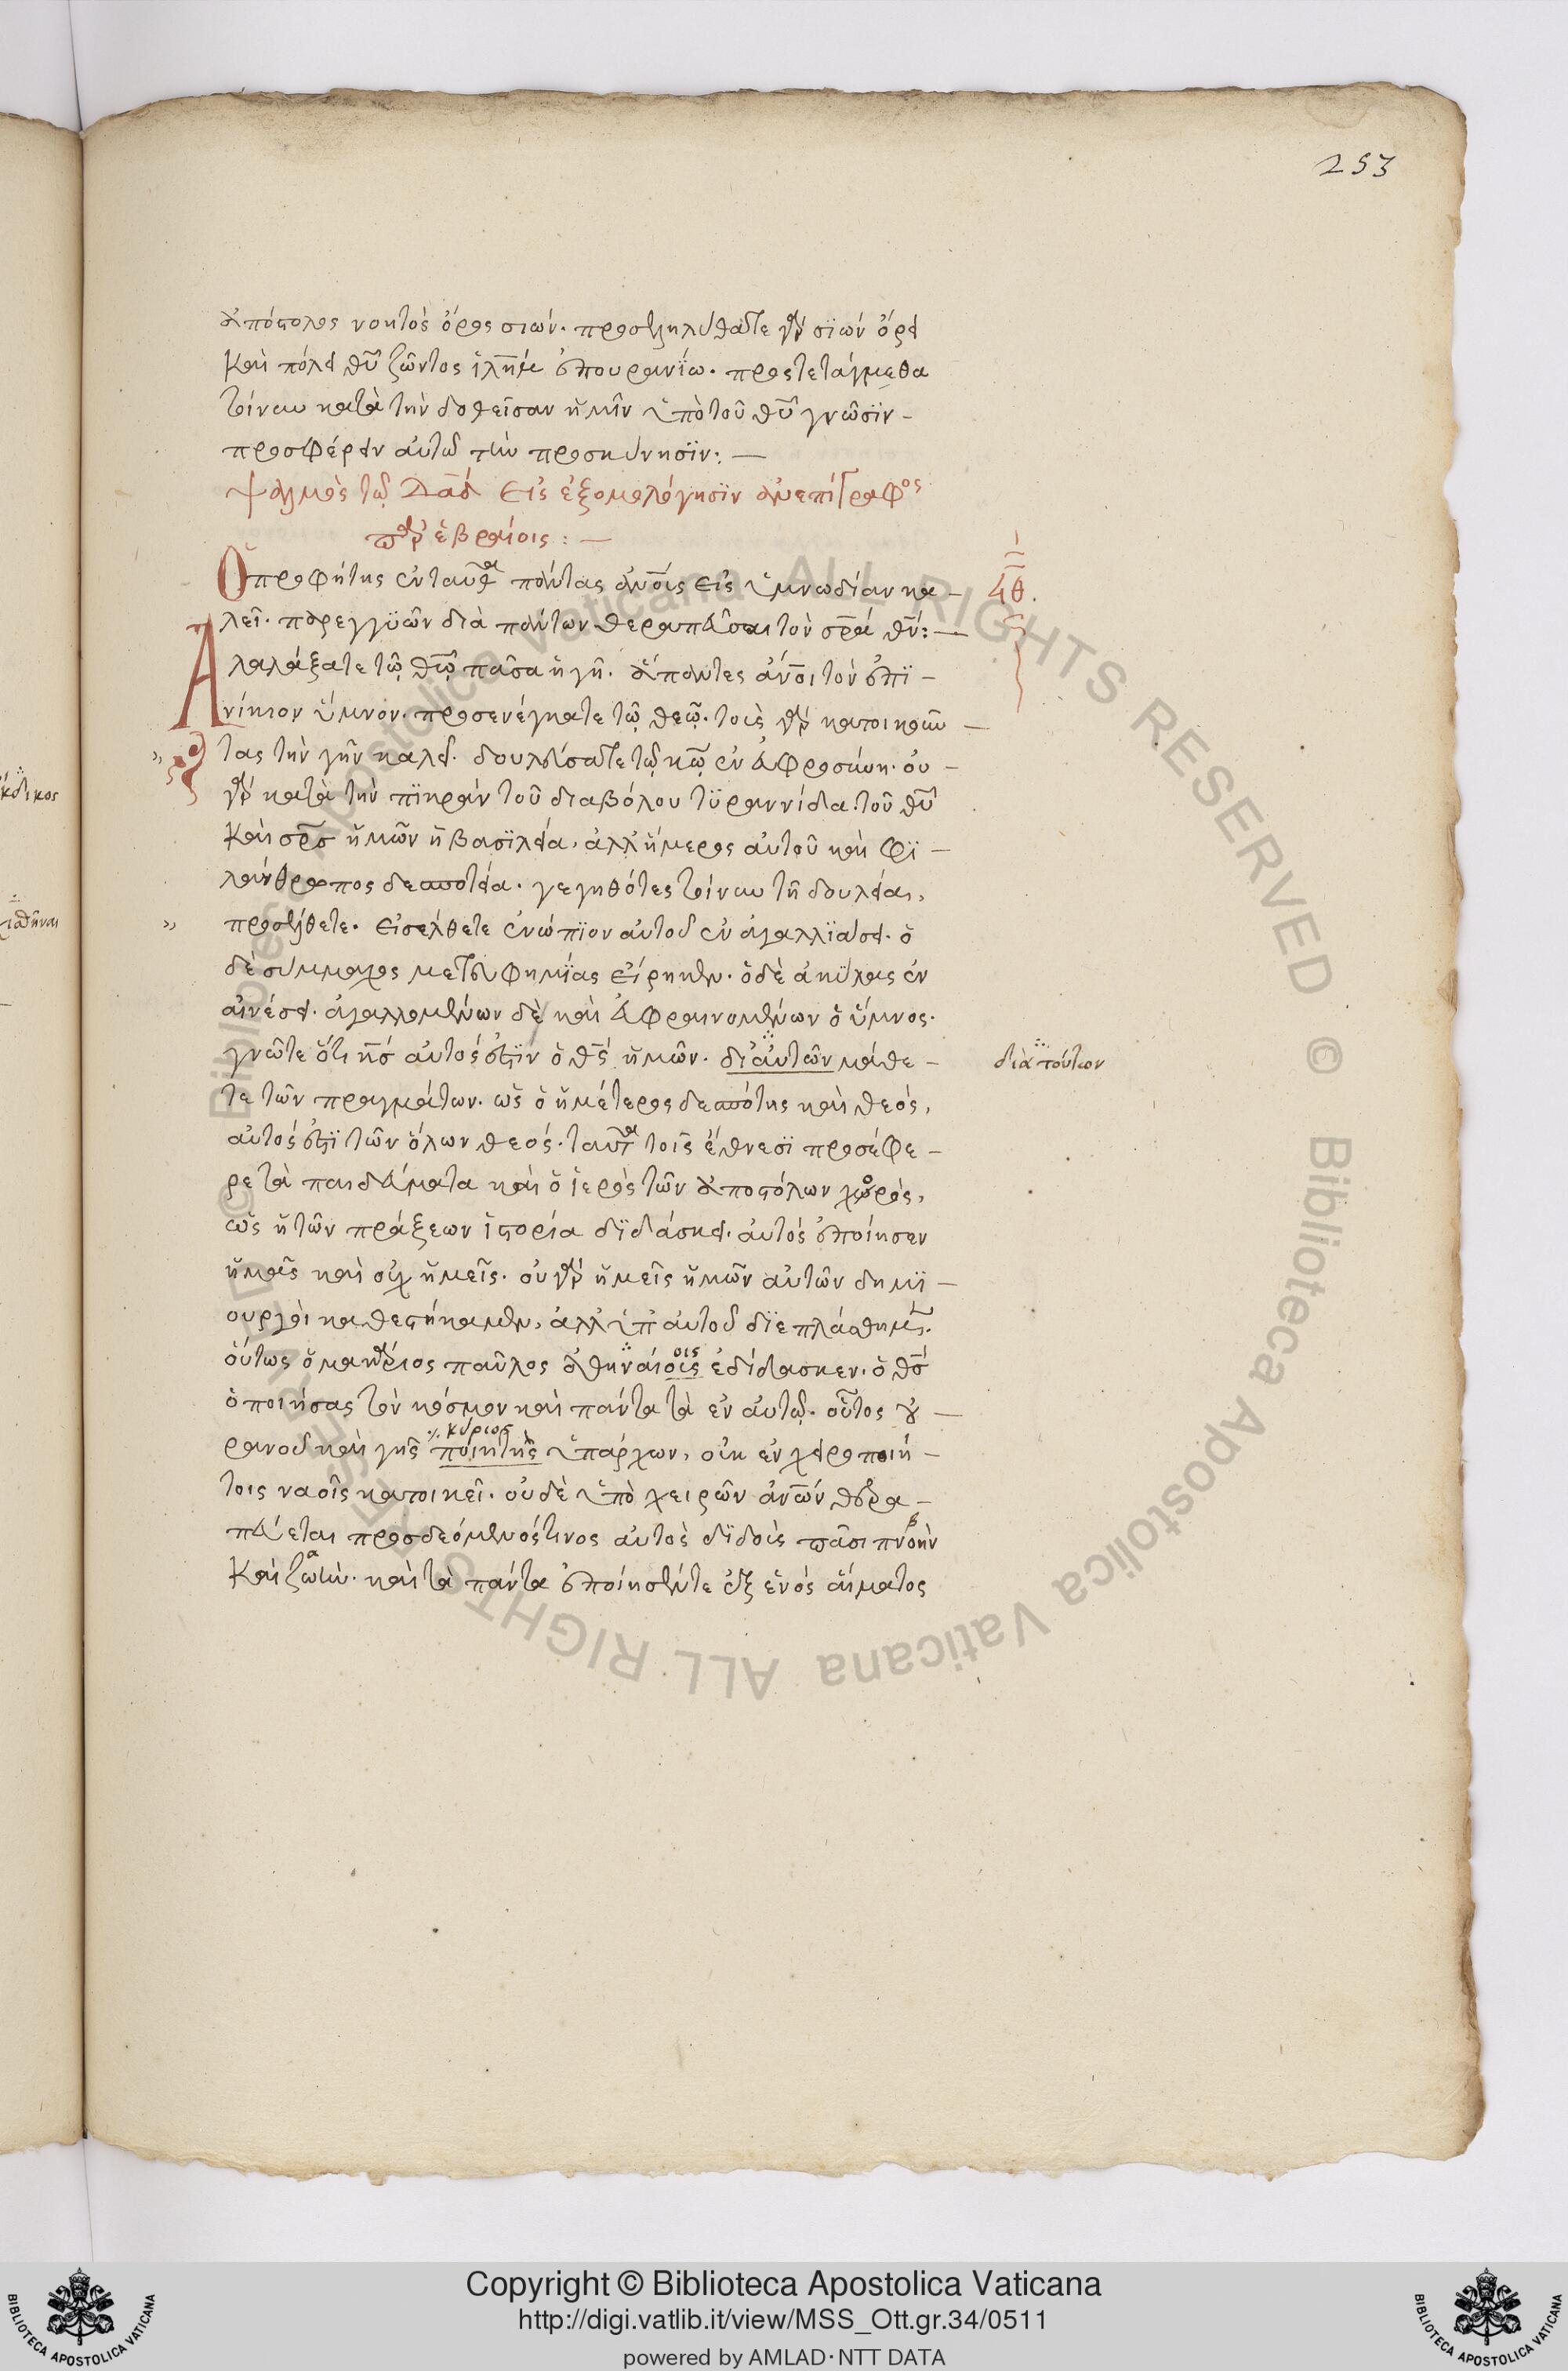 253
ἀπόστολος νοητὸς ὄρος σιών. προσεληλύθατε γὰρ σϊὼν ὄρει
καὶ πόλει θῦ ζῶντος ϊλῆμ ἐπουρανΐω. προστετάγμεθα
τοίνυν κατὰ τὴν δοθεῖσαν ἡμῖν ὑπὸ τοῦ θῦ γνῶσϊν –
προσφέρειν αὐτῶ τὴν προσκύνησϊν: —
ψαλμὸς τῶ δαδ εἰς ἐξομολόγησϊν ἀνεπίγραφος
παρ' ἑβραίοις : —
Ὁ προφήτης ἐνταῦθα πάντας ἀνοῖς εἰς ὑμνωδίαν κα –
ϟθ.
λεῖ. παρεγγϋῶν διὰ πάντων θεραπεῦσαι τὸν σρᾶ θν: —
Ἀλαλάξατε τῶ θῶ πᾶσα ἡ γῆ. ἅπαντες ἄνοι τὸν ἐπϊ –
νίκιον ὕμνον. προσενέγκατε τῶ θεῶ. τοὶς γὰρ κατοικοῦν –
τας τὴν γῆν καλεῖ. δουλεύσατε τῶ κῶ ἐν εὐφροσύνη. οὐ –
γὰρ κατὰ τὴν πϊκρὰν τοῦ διαβόλου τϋραννίδα τοῦ θῦ
καὶ σρσ ἡμῶν ἡ βασϊλεία, ἀλλ' ἥμερος αὐτοῦ καὶ φϊ –
λάνθρωπος δεσποτεία. γεγηθότες τοίνυν τῆ δουλεία,
προσέλθετε. εἰσέλθετε ἐνώπϊον αὐτοῦ ἐν ἀγαλλϊάσει. ὁ
δὲ σύμμαχος μετ' εὐφημΐας εἴρηκεν. ὁ δὲ ἀκϋλας ἐν
αἰνέσει. ἀγαλλομένων δὲ καὶ εὐφραινομένων ὁ ὕμνος.
γνῶτε ὅτι κσ αὐτός ἐστϊν ὁ θς ἡμῶν. δι' αὐτῶν μάθε –
διὰ τούτων
τε τῶν πραγμάτων. ὡς ὁ ἡμέτερος δεσπότης καὶ θεός,
αὐτός ἐστϊ τῶν ὅλων θεός. ταῦτα τοῖς ἔθνεσϊ προσέφε –
ρε τὰ παιδεύματα καὶ ὁ ἱερὸς τῶν ἀποστόλων χορὸς,
ὡς ἡ τῶν πράξεων ἱστορία δϊδάσκει. αὐτός ἐποίησεν
ἡμᾶς καὶ οὐχ ἡμεῖς. οὐ γὰρ ἡμεῖς ἡμῶν αὐτῶν δημϊ –
ουργοὶ καθεστήκαμεν, ἀλλ' ὑπ' αὐτοῦ δϊεπλάσθημεν.
οὕτως ὁ μακάριος παῦλος ἀθηναίοις ἐδίδασκεν. ὁ θσ
ὁ ποιήσας τὸν κόσμον καὶ πάντα τὰ ἐν αὐτῶ. οὗτος οὐ –
κύριος
ρανοῦ καὶ γῆς ποιητὴς ὑπάρχων, οὐκ ἐν χειροποιή –
τοις ναοῖς κατοικεῖ. οὐδὲ ὑπὸ χειρῶν ἀνων θερα –
πεύεται προσδεόμενός τινος αὐτὸς δϊδοὺς πᾶσι πνοὴν
καὶ ζωὴν. καὶ τὰ πάντα ἐποίησέν τε ἐξ ἑνὸς αἵματος
Copyright © Biblioteca Apostolica Vaticana
http://digi.vatlib.it/view/MSS_Ott.gr.34/0511
powered by AMLAD·NTT DATA